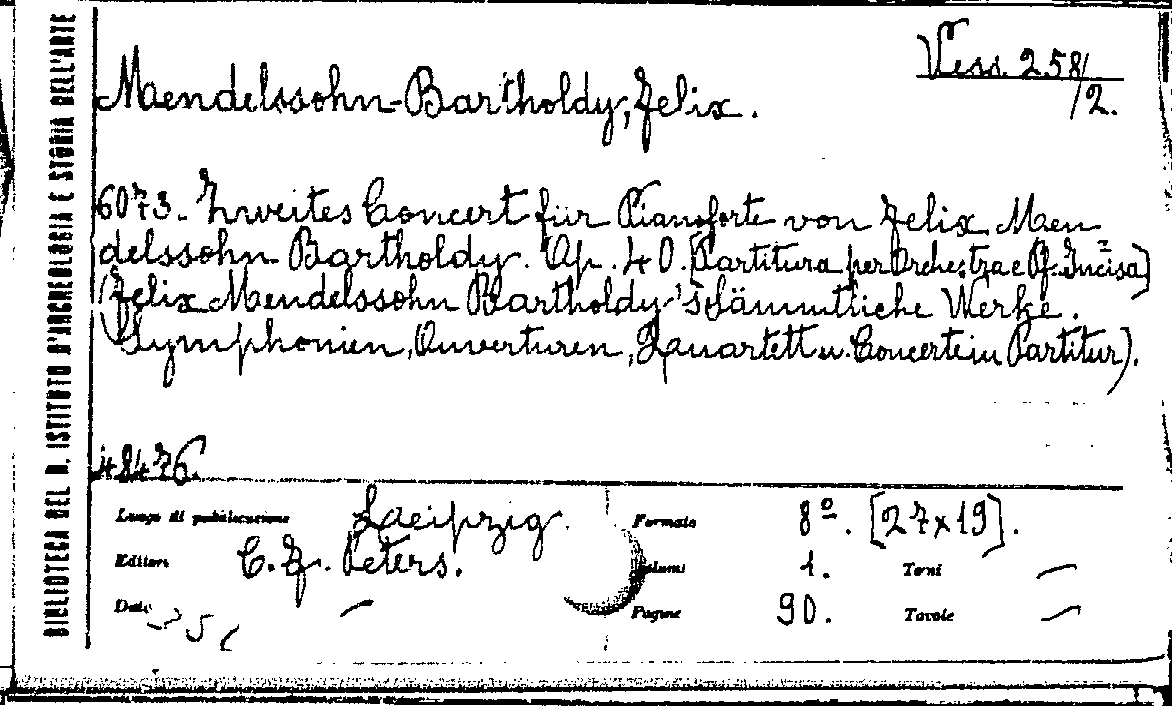 BIBLIOTECA DEL R. ISTITUTO D'ARCHEOLOGIA E STORIA DELL'ARTE
Vess. 258/2.
Mendelssohn-Bartholdy, Felix.
6073. Zweites Concert für Pianoforte von Felix Men
delssohn Bartholdy. Op. 40. [Partitura per Orchestra e Pf. Incisa]
(Felix Mendelssohn Bartholdy's Sämmtliche Werke.
Symphonien, Ouverturen, Quartett u. Concerte in Partitur).
48476.
Luogo di pubblicazione Leipzig. Formato 8º. [27x19].
Editore C. F. Peters. Volumi 1. Tomi —
Data — Pagine 90. Tavole —